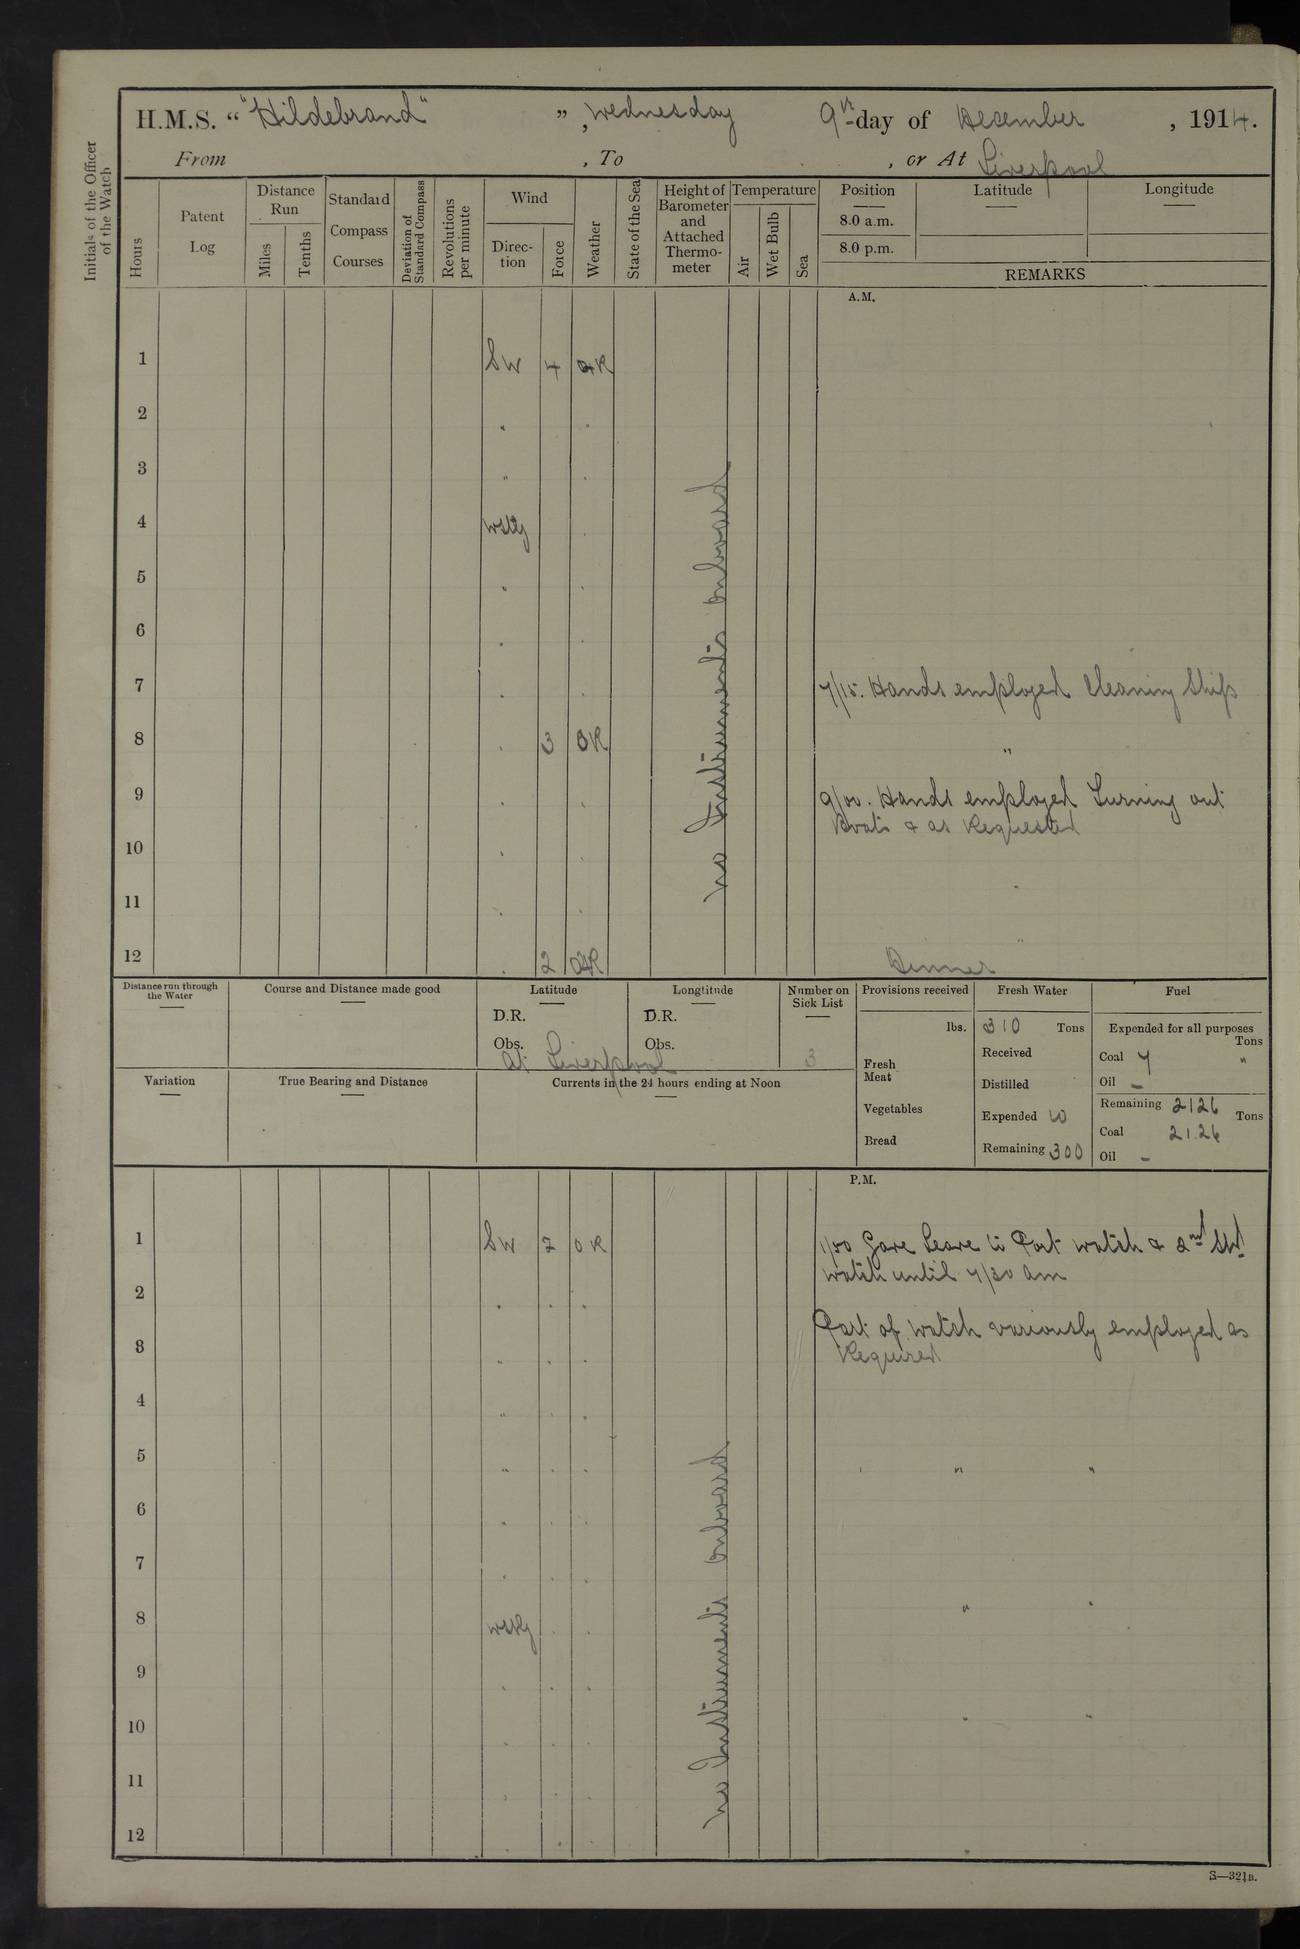 H.M.S. “ "Hildebrand" ” , Wednesday 9th day of December , 1914.
From , To , or At Liverpool
Initials of the Officer of the Watch
Hours
Patent Log
Distance Run
Miles
Tenths
Standard Compass Courses
Deviation of Standard Compass
Revolutions per minute
Wind
Direc-tion
Force
Weather
State of the Sea
Height of Barometer and Attached Thermo-meter
Temperature
Air
Wet Bulb
Sea
Position Latitude Longitude
8.0 a.m.
8.0 p.m.
REMARKS
A.M.
1 SW 4 OR
2 " "
3 " "
4 Wstly
5 " "
6 " "
7 " " 7/15. Hands employed Cleaning Ship
8 " 3 OR "
9 " " 9/00. Hands employed Turning out
Boats & as Requested
10 " "
11 " "
12 " 2 OR Dinner
No Instruments Onboard
Distance run through the Water
Course and Distance made good
Latitude
D.R.
Obs.
Longtitude
D.R.
Obs.
At Liverpool
Number on Sick List
3
Variation
True Bearing and Distance
Currents in the 24 hours ending at Noon
Provisions received
lbs.
Fresh Meat
Vegetables
Bread
Fresh Water
310 Tons
Received
Distilled
Expended 10
Remaining 300
Fuel
Expended for all purposes
Tons
Coal 7 "
Oil –
Remaining 2126 Tons
Coal 2126
Oil –
P.M.
1 SW 2 OR 1/30 Gave Leave to Port watch & 2nd Stbd
watch until 7/30 am
2 " " "
Part of Watch variously employed as
3 " " "
Required
4 " " "
5 " " " " "
6 " " "
7 " " "
8 Wstly " " " "
9 " " "
10 " " " " "
11 " " "
12 " " " "
No Instruments Onboard
S—321B.